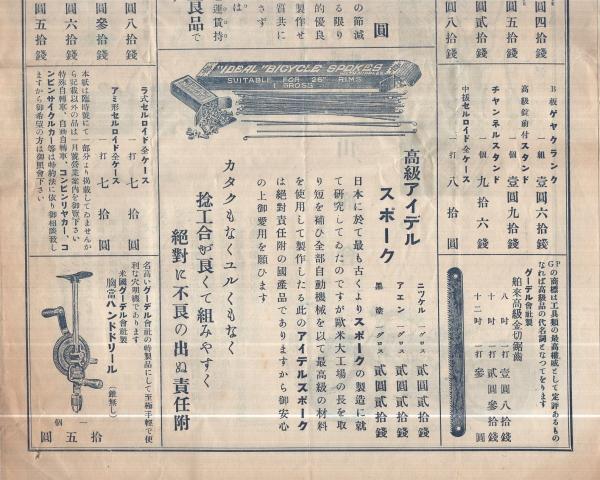 圓四拾錢
圓五拾錢
圓貳拾錢
圓八拾錢
B板ギヤクランク
一組 壹圓六拾錢
高級錠前付スタンド
一個 壹圓九拾錢
チヤンネルスタンド
一個 九拾六錢
中拔セルロイド全ケース
一打 八拾圓
GPの商標は工具類の最高權威として定評あるもの
なれば高級品の代名詞となつてをります
グーデル會社製
舶來高級金切鋸齒
八吋 一打 壹圓八拾錢
十吋 一打 貳圓參拾錢
十二吋 一打 參圓
の節減
る限り
的優良
製作せ
質共に
さず
圓
は。
運賃持
良品で
"IDEAL" BICYCLE SPOKES
SUITABLE FOR 26" RIMS
1 GROSS
高級アイデル
スポーク
ニツケル 一グロス 貳圓貳拾錢
アエン 一グロス 貳圓貳拾錢
黒塗 一グロス 貳圓貳拾錢
日本に於て最も古くよりスポークの製造に就
て研究してゐたのですが歐米大工場の長を取
り短を補ひ全部自動機械を以て最高級の材料
を使用して製作したる此のアイデルスポーク
は絶對責任附の國產品でありますから御安心
の上御愛用を願ひます
カタクもなくユルくもなく
捻工合が良くて組みやすく
絕對に不良の出ぬ責任附
圓八拾錢
圓參拾錢
圓六拾錢
圓五拾錢
ラ式セルロイド全ケース
一打 七拾圓
アミ形セルロイド全ケース
一打 七拾圓
本紙は臨時號にて一部分より掲載してゐませんか
ら記載以外の品は一月號營業案內を御覽下さい
特殊自轉車、自動自轉車、コンビンリヤカー、コ
ンビンサイクルカー等は特約法に依り御相談致し
ますから御希望の方は御照會下さい
名高いグーデル會社の特製品にして至極手輕で便
利な穴明機であります
米國グーデル會社製
胸當ハンドドリール
（錐無し）
一個
拾五圓